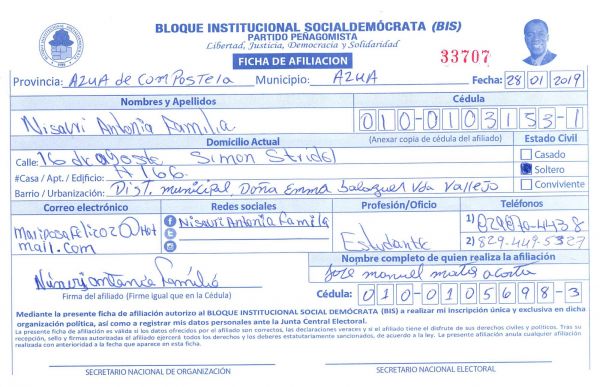 BLOQUE INSTITUCIONAL SOCIALDEMÓCRATA (BIS)
PARTIDO PEÑAGOMISTA
Libertad, Justicia, Democracia y Solidaridad
FICHA DE AFILIACION
33707
Provincia: AZUA de Compostela Municipio: AZUA Fecha: 28 01 2019
Nombres y Apellidos Cédula
Nisauri Antonia Familia 010-0103153-1
Domicilio Actual (Anexar copia de cédula del afiliado) Estado Civil
Calle: 16 de agoste Simon Stridel Casado
#Casa / Apt. / Edificio: # 166 Soltero
Barrio / Urbanización: Dist. municipal Doña Emma balaguer Vda Vallejo Conviviente
Correo electrónico Redes sociales Profesión/Oficio Teléfonos
mariposafelico2@Hot Nisauri Antonia Familia 1) 829 870-4438
mail.com Estudiante 2) 829-449-5327
Nombre completo de quien realiza la afiliación
Jose manuel matos acosta
Firma del afiliado (Firme igual que en la Cédula) Cédula: 010-0105698-3
Mediante la presente ficha de afiliación autorizo al BLOQUE INSTITUCIONAL SOCIAL DEMÓCRATA (BIS) a realizar mi inscripción única y exclusiva en dicha
organización política, así como a registrar mis datos personales ante la Junta Central Electoral.
La presente ficha de afiliación es válida si los datos ofrecidos por el afiliado son correctos, las declaraciones veraces y si el afiliado tiene el disfrute de sus derechos civiles y políticos. Tras su
recepción, sello y firmas autorizadas el afiliado ejercerá todos los derechos y los deberes estatutariamente sancionados, de acuerdo a la ley. La presente afiliación anula cualquier afiliación
realizada con anterioridad a la fecha que aparece en esta ficha.
SECRETARIO NACIONAL DE ORGANIZACIÓN SECRETARIO NACIONAL ELECTORAL